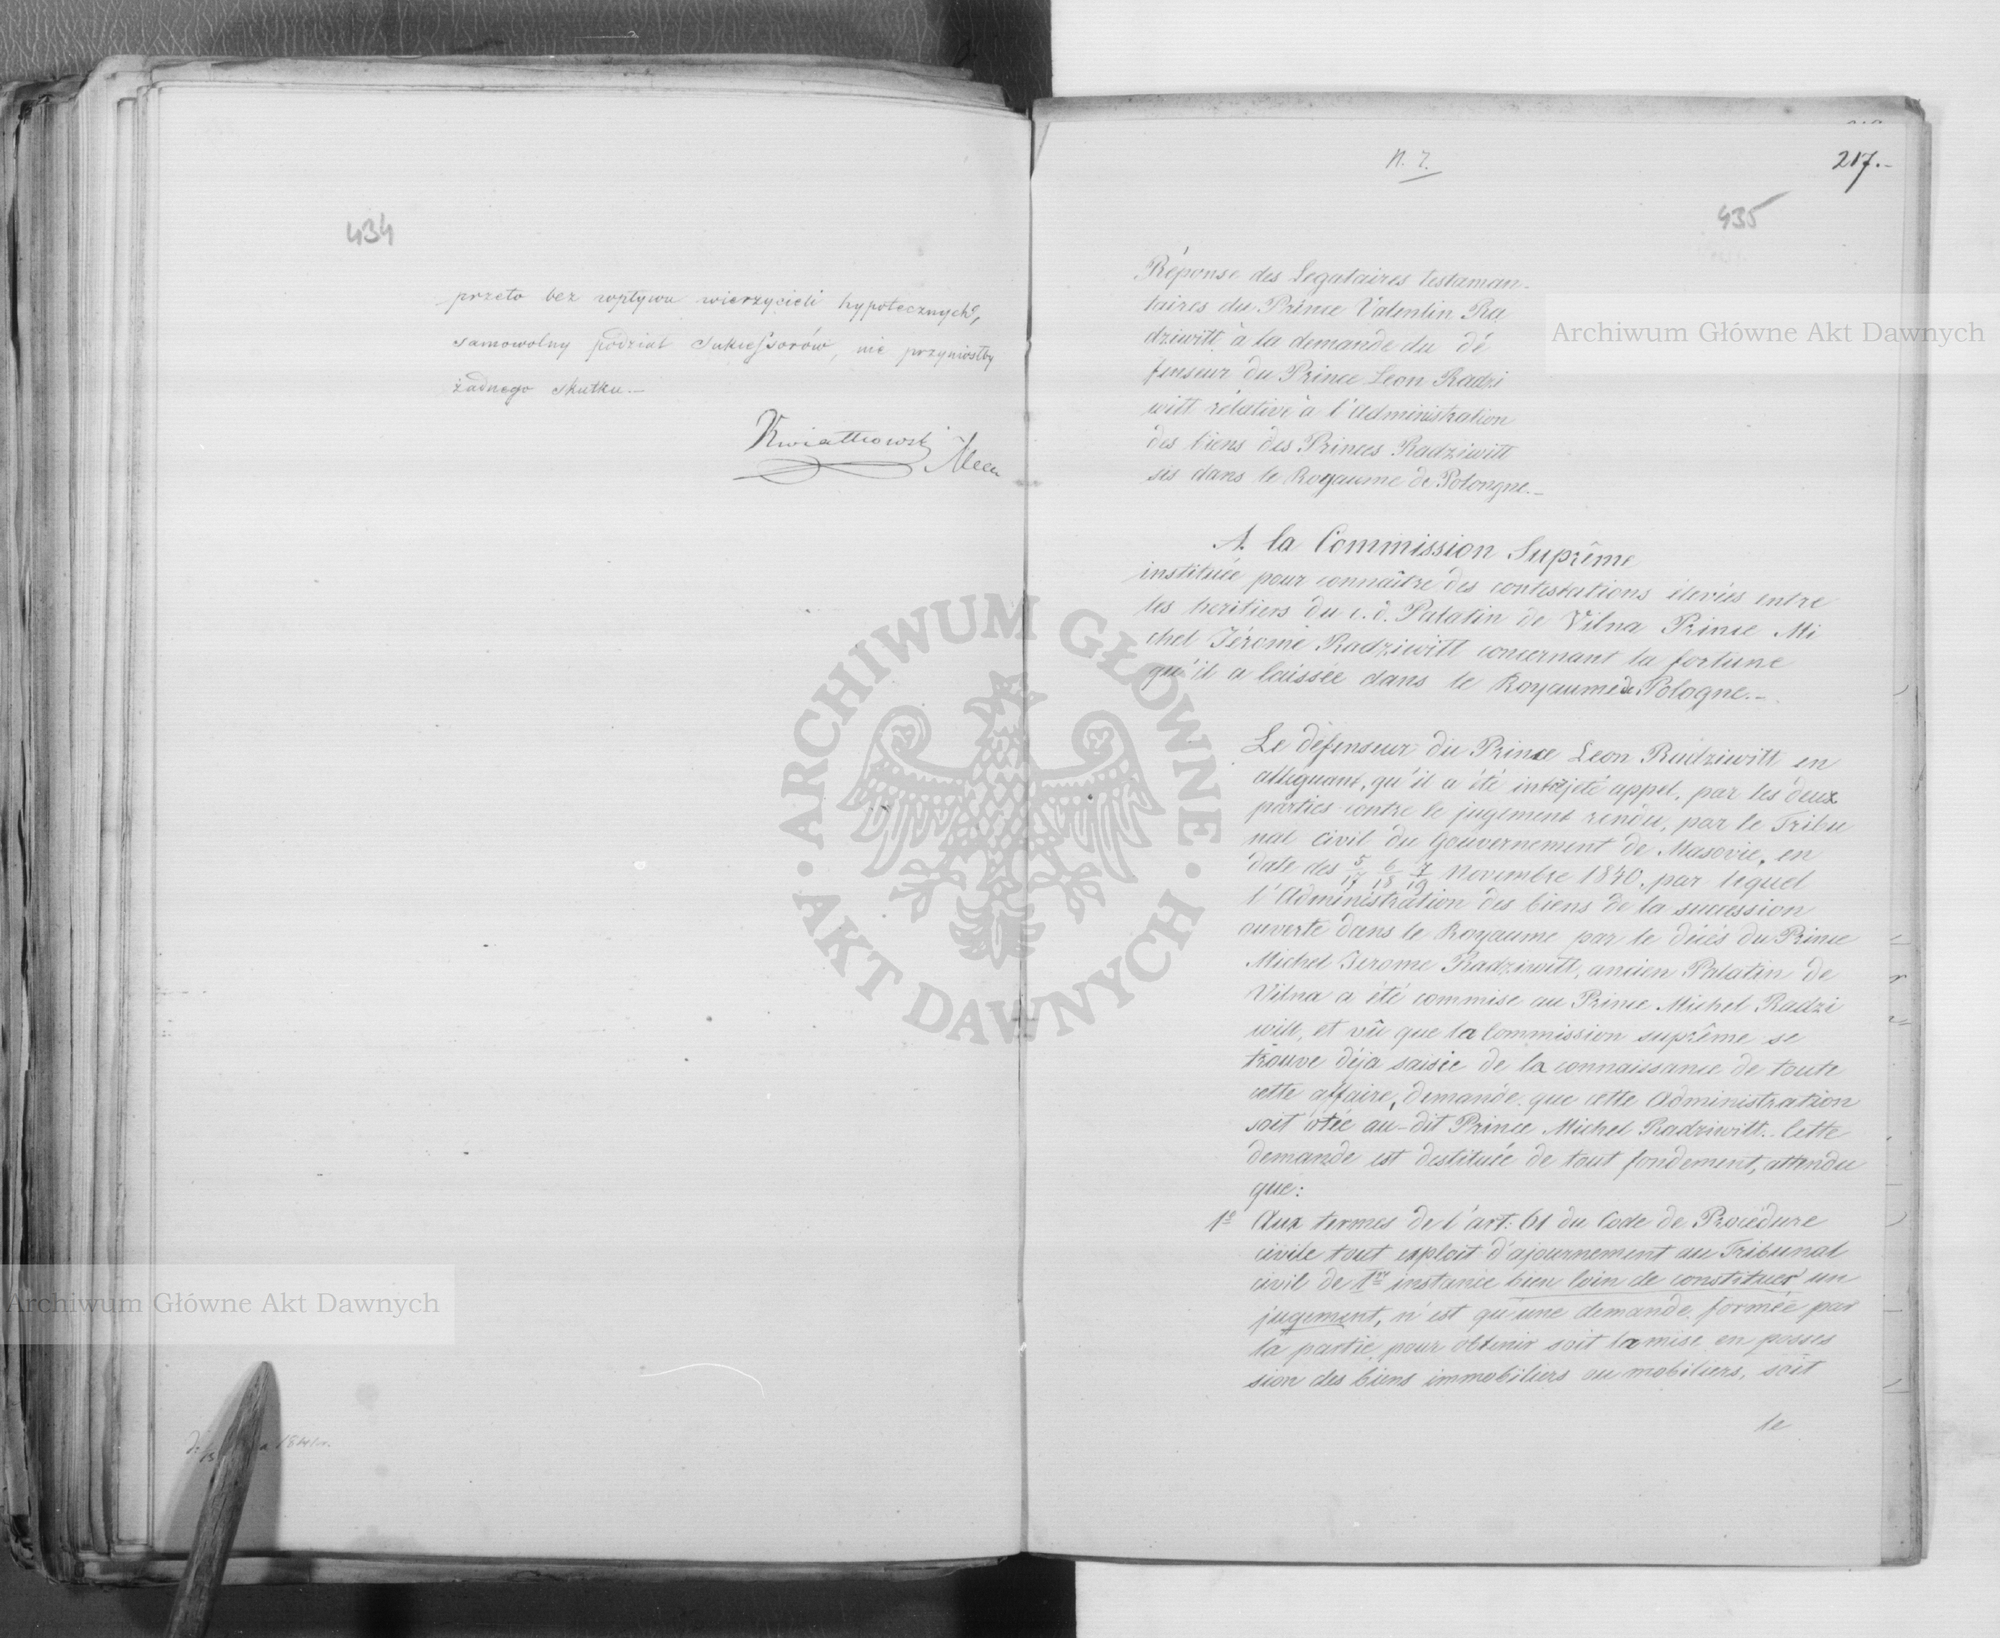 434
przeto bez wpływu wierzycieli hypotecznych,
samowolny podział Sukcessorów, nie przyniósłby
żadnego skutku.—
Kwiatkowski
217.-
435
Réponse des Legataires testaman-
taires du Prince Valentin Ra
dziwiłł à la demande du dé
fenseur du Prince Leon Radzi
wiłł rélative à l'Administration
des biens des Princes Radziwiłł
sis dans le Royaume de Polongne.-
A la Commission Suprême
instituée pour connaître des contestations élevées entre
les heritiers du c.d. Palatin de Vilna Prince Mi
chel Jérome Radziwiłł concernant la fortune
qu'il a laissée dans le Royaume de Pologne.-
Le défenseur du Prince Leon Radziwiłł en
alleguant, qu'il a été interjeté appel, par les deux
parties contre le jugement rendu, par le Tribu
nal civil du Gouvernement de Masovie, en
date des 5/17 6/18 7/19 Novembre 1840, par lequel
l'Administration des biens de la succession
ouverte dans le Royaume par le décés du Prince
Michel Jerome Radziwiłł, ancien Palatin de
Vilna a été commise au Prince Michel Radzi
wiłł, et vû que la Commission suprême se
trouve déja saisie de la connaissance de toute
cette affaire, demande que cette Administration
soit otée au-dit Prince Michel Radziwiłł. Cette
demande est destituée de tout fondement, attendu
que:
1e Aux termes de l'art: 61 du Code de Procédure
civile tout exploit d'ajournement au Tribunal
civil de 1re instance bien loin de constituer un
jugement, n'est qu'une demande formée par
la partie pour obtenir soit la mise en posses
sion des biens immobiliers ou mobiliers, soit
le
Archiwum Główne Akt Dawnych
Archiwum Główne Akt Dawnych
ARCHIWUM GŁÓWNE · AKT DAWNYCH ·